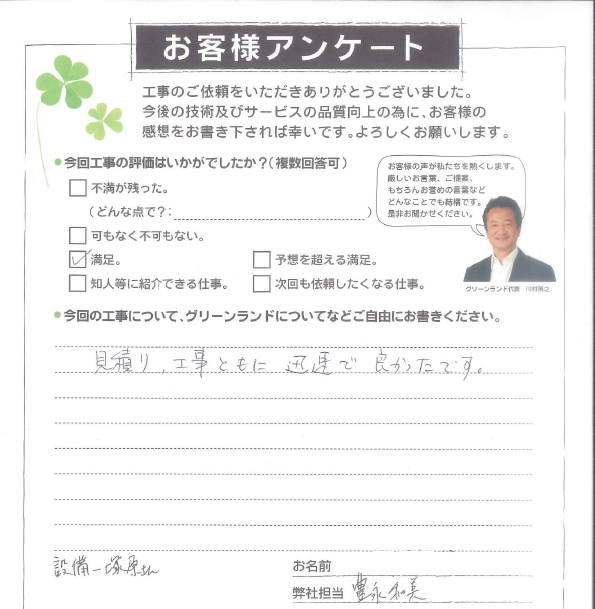 お客様アンケート
工事のご依頼をいただきありがとうございました。
今後の技術及びサービスの品質向上の為に、お客様の
感想をお書き下されば幸いです。よろしくお願いします。
今回工事の評価はいかがでしたか?(複数回答可)
不満が残った。
(どんな点で?: )
可もなく不可もない。
満足。
予想を超える満足。
知人等に紹介できる仕事。
次回も依頼したくなる仕事。
お客様の声が私たちを熱くします。
厳しいお言葉、ご提案、
もちろんお誉めの言葉など
どんなことでも結構です。
是非お聞かせください。
グリーンランド代表 川村英之
今回の工事について、グリーンランドについてなどご自由にお書きください。
見積り、工事ともに 迅速で 良かったです。
設備ー塚原さん
お名前
弊社担当 豊永和美